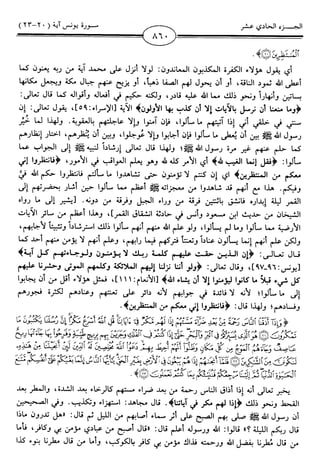 الجـزء الحادي عشر
٨٦٠
سورة يونس آية (٢٠-٢٣)
الْمُنتَظِرِينَ
أي يقول هؤلاء الكفرة المكذبون المعاندون: لولا أنزل على محمد آية من ربه يعنون كما
أعطى الله ثمود الناقة، أو أن يحول لهم الصفا ذهباً، أو يزيح عنهم جبال مكة ويجعل مكانها
بساتين وأنهاراً ونحو ذلك مما الله عليه قادر، ولكنه حكيم في أفعاله وأقواله كما قال تعالى:
﴿وما منعنا أن نرسل بالآيات إلا أن كذب بها الأولون﴾ الآية [الإسراء:٥٩]، يقول تعالى: إن
سنتي في خلقي أني إذا آتيتهم ما سألوا، فإن آمنوا وإلا عاجلتهم بالعقوبة. ولهذا لما خُيّر
رسول الله ﷺ بين أن يُعطى ما سألوا فإن أجابوا وإلا عُوجلوا، وبين أن يُنظرهم، اختار إنظارهم
كما حلم عنهم غير مرة رسول الله ﷺ، ولهذا قال تعالى إرشاداً لنبيه ﷺ إلى الجواب عما
سألوا: ﴿فقل إنما الغيب لله﴾ أي الأمر كله لله وهو يعلم العواقب في الأمور، ﴿فانتظروا إني
معكم من المنتظرين﴾ أي إن كنتم لا تؤمنون حتى تشاهدوا ما سألتم فانتظروا حكم الله فيَّ
وفيكم. هذا مع أنهم قد شاهدوا من معجزاته ﷺ أعظم مما سألوا حين أشار بحضرتهم إلى
القمر ليلة إبداره فانشق باثنتين فرقة من وراء الجبل وفرقة من دونه.
الشيخان من حديث ابن مسعود وأنس في حادثة انشقاق القمر)، وهذا أعظم من سائر الآيات
الأرضية مما سألوا وما لم يسألوا، ولو علم الله منهم أنهم سألوا ذلك استرشاداً وتثبتاً لأجابهم،
ولكن علم أنهم إنما يسألون عناداً وتعنتاً فتركهم فيما رابهم، وعلم أنهم لا يؤمن منهم أحد كما
قال تعالى: ﴿إن الذين حقت عليهم كلمة ربك لا يؤمنون ولو جاءتهم كل آية﴾
[يونس:٩٦-٩٧]، وقال تعالى: ﴿ولو أننا نزلنا إليهم الملائكة وكلمهم الموتى وحشرنا عليهم
كل شيء قبلاً ما كانوا ليؤمنوا إلا أن يشاء الله﴾ [الأنعام:١١١]، فمثل هؤلاء أقل من أن يجابوا
إلى ما سألوا؛ لأنه لا فائدة في جوابهم لأنه دائر على تعنتهم وعنادهم لكثرة فجورهم
وفسادهم؛ ولهذا قال: ﴿فانتظروا إني معكم من المنتظرين﴾.
يخبر تعالى أنه إذا أذاق الناس رحمة من بعد ضراء مستهم كالرخاء بعد الشدة، والمطر بعد
القحط ونحو ذلك ﴿إذا لهم مكر في آياتنا﴾. قال مجاهد: استهزاء وتكذيب. وفي الصحيحين
أن رسول الله ﷺ صلى بهم الصبح على أثر سماء أصابهم من الليل ثم قال: «هل تدرون ماذا
قال ربكم الليلة؟» قالوا: الله ورسوله أعلم قال: «قال أصبح من عبادي مؤمن بي وكافر، فأما
من قال مُطرنا بفضل الله ورحمته فذاك مؤمن بي كافر بالكوكب، وأما من قال مطرنا بنوء كذا